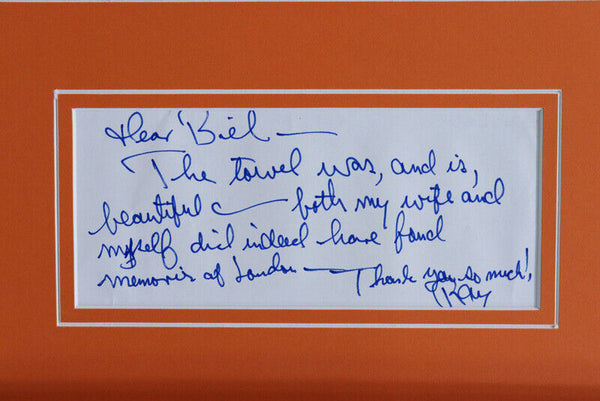 Dear Bill —
The towel was, and is,
beautiful — both my wife and
myself did indeed have fond
memories of London — Thank you so much!